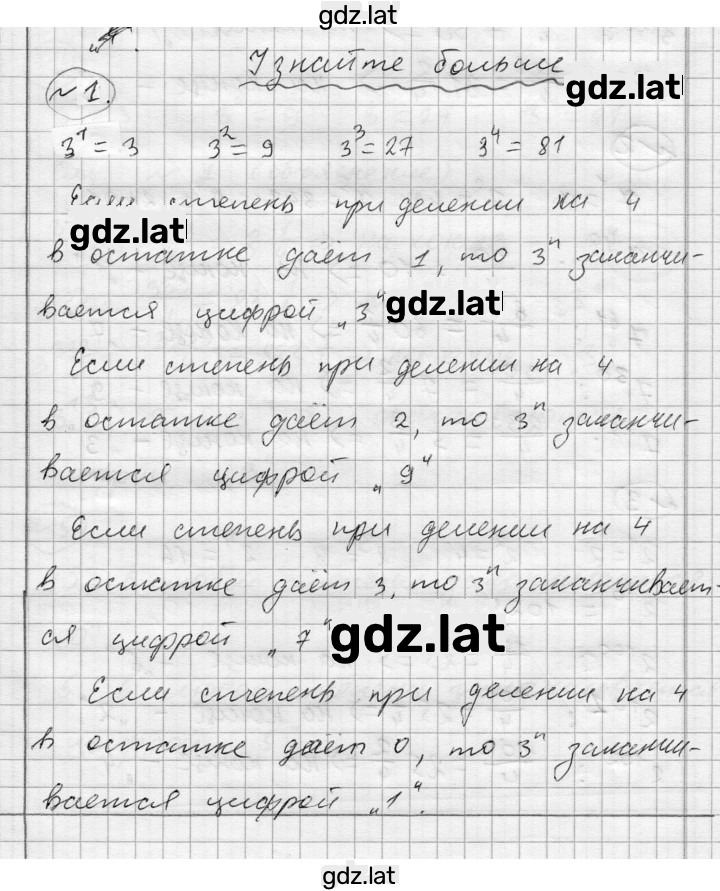 gdz.lat
Узнайте больше
gdz.lat
№1.
3¹ = 3 3² = 9 3³ = 27 3⁴ = 81
Если степень при делении на 4
gdz.lat
в остатке даёт 1, то 3ⁿ заканчи-
вается цифрой „3“
gdz.lat
Если степень при делении на 4
в остатке даёт 2, то 3ⁿ заканчи-
вается цифрой „9“
Если степень при делении на 4
в остатке даёт 3, то 3ⁿ заканчивает-
ся цифрой „7“
gdz.lat
Если степень при делении на 4
в остатке даёт 0, то 3ⁿ заканчи-
вается цифрой „1“.
gdz.lat